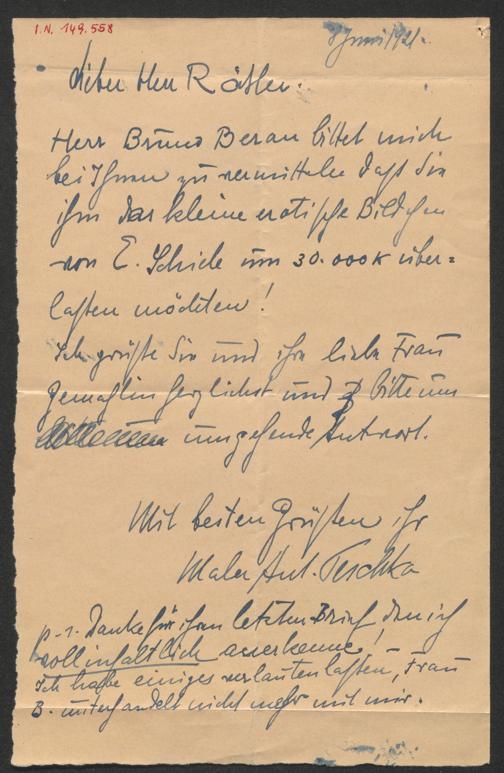 I.N. 149.558
Juni 1921.
Lieber Herr Rösler.
Herr Bruno Beran bittet mich
bei Ihnen zu vermitteln daß Sie
ihm das kleine erotische Bildchen
von E. Schiele um 30.000 K über=
laßen möchten!
Ich grüße Sie und ihre liebe Frau
Gemahlin herzlichst und bitte um
umgehende Antwort.
Mit besten Grüßen ihr
Maler Ant. Peschka
p.s. Danke für ihren letzten Brief den ich
vollinhaltlich anerkenne! –
Ich habe einiges verlauten laßen, Frau
B. unterhandelt nicht mehr mit mir.